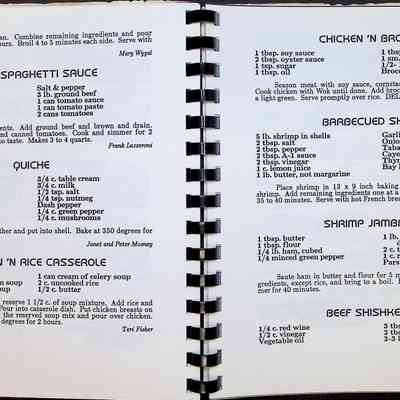 an. Combine remaining ingredients and pour
ours. Broil 4 to 5 minutes each side. Serve with
Mary Wypal
SPAGHETTI SAUCE
Salt & pepper
2 lb. ground beef
1 can tomato sauce
1 can tomato paste
2 cans tomatoes
ents. Add ground beef and brown and drain.
canned tomatoes. Cook and simmer for 2
to taste. Makes 3 to 4 quarts.
Frank Lazzeroni
QUICHE
3/4 c. table cream
3/4 c. milk
1/2 tsp. salt
1/4 tsp. nutmeg
Dash pepper
1/4 c. green pepper
1/4 c. mushrooms
ther and put into shell. Bake at 350 degrees for
Janet and Peter Mooney
'N RICE CASSEROLE
1 can cream of celery soup
n soup 2 c. uncooked rice
oup 1/2 c. butter
reserve 1 1/2 c. of soup mixture. Add rice and
Pour into casserole dish. Put chicken breasts on
the reserved soup mix and pour over chicken.
degrees for 2 hours.
Teri Fisher
CHICKEN 'N BRO
1 tbsp. soy sauce 1 tbsp.
2 tbsp. oyster sauce 1 sm.
1 tsp. sugar 1/2-
1 tbsp. oil Broc
Season meat with soy sauce, cornsta
Cook chicken with Wok until done. Add broc
a light green. Serve promptly over rice. DEL
BARBECUED SH
5 lb. shrimp in shells Garli
2 tbsp. salt Onio
2 tbsp. pepper Taba
2 tbsp. A-1 sauce Caye
2 tbsp. vinegar Thy
1 c. lemon juice Bay l
1 lb. butter, not margarine
Place shrimp in 13 x 9 inch baking
shrimp. Add remaining ingredients one at a
35 to 40 minutes. Serve with hot French brea
SHRIMP JAMB
1 tbsp. butter 1 lb.
1 tbsp. flour
1/4 lb. ham, cubed 2 c.
1/4 minced green pepper 1 c.
Pars
Saute ham in butter and flour for 5 m
gredients, except rice, and bring to a boil.
mer for 40 minutes.
BEEF SHISHKE
1/4 c. red wine 3 tbs
1/2 c. vinegar 2 tbs
Vegetable oil 2-3 l